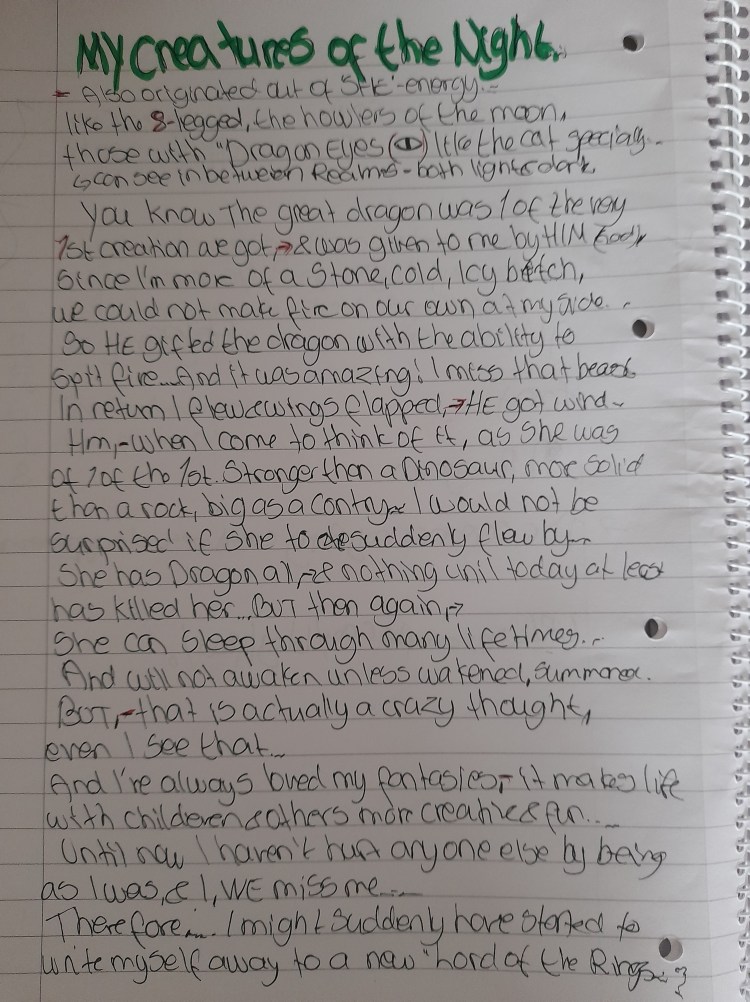 My Creatures of the Night..
- Also originated out of SHE'-energy.-
like the 8-legged, the howlers of the moon,
those with "Dragon Eyes () like the cat specially-
↳ can see in between Realms - both light & dark
You know The great dragon was 1 of the very
1st creation we got, → & was given to me by HIM (God)
Since I'm more of a Stone, cold, Icy bitch,
we could not make fire on our own at my side. -
So HE gifted the dragon with the ability to
Spit fire... And it was amazing! I miss that beast.
In return I flew & wings flapped, → HE got wind~
Hm, - when I come to think of it, as She was
of 1 of the 1st. Stronger than a Dinosaur, more Solid
than a rock, big as a contry~ I would not be
surprised if she to suddenly flew by~
She has Dragon & nothing until today at least
has killed her... BUT then again, →
She can Sleep through many lifetimes...
And will not awaken unless wakened, Summoned.
BUT, - that is actually a crazy thought,
even I see that...
And I've always loved my fantasies, - it makes life
with childeren & others more creative & fun....
Until now I haven't hurt anyone else by being
as I was, & I, WE miss me....
Therefore.... I might suddenly have started to
write myself away to a new "Lord of the Rings..?